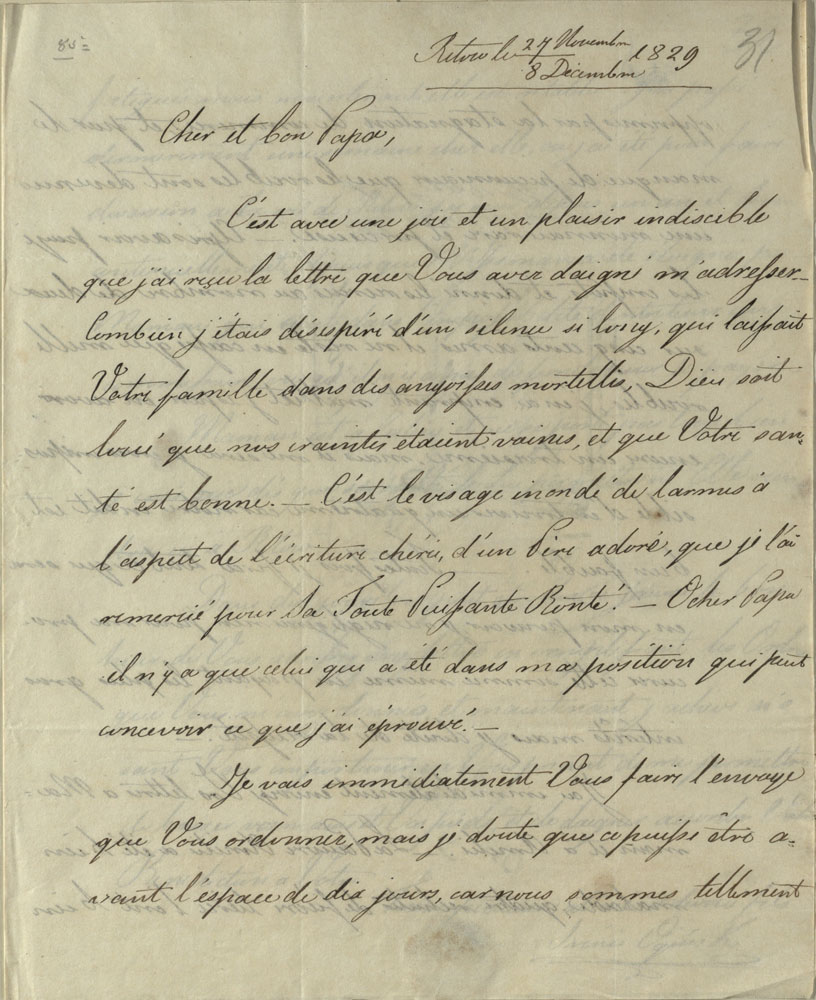 85=
Retowo le 27 Novembre / 8 Décembre 1829
31
Cher et bon Papa,
C'est avec une joie et un plaisir indiscible
que j'ai reçu la lettre que Vous avez daigné m'adresser._
Combien j'étais désespéré d'un silence si long, qui laissait
Votre famille dans des angoisses mortelles, Dieu soit
loué que nos craintes étaient vaines, et que Votre san-
té est bonne. _ C'est le visage inondé de larmes à
l'aspect de l'écriture chérie, d'un Père adoré, que je l'ai
remercié pour Sa Toute Puissante Bonté! _ O cher Papa
il n'y a que celui qui a été dans ma position qui peut
concevoir ce que j'ai éprouvé. _
Je vais immédiatement Vous faire l'envoye
que Vous ordonnez, mais je doute que ce puisse être a-
vant l'espace de dix jours, car nous sommes tellement